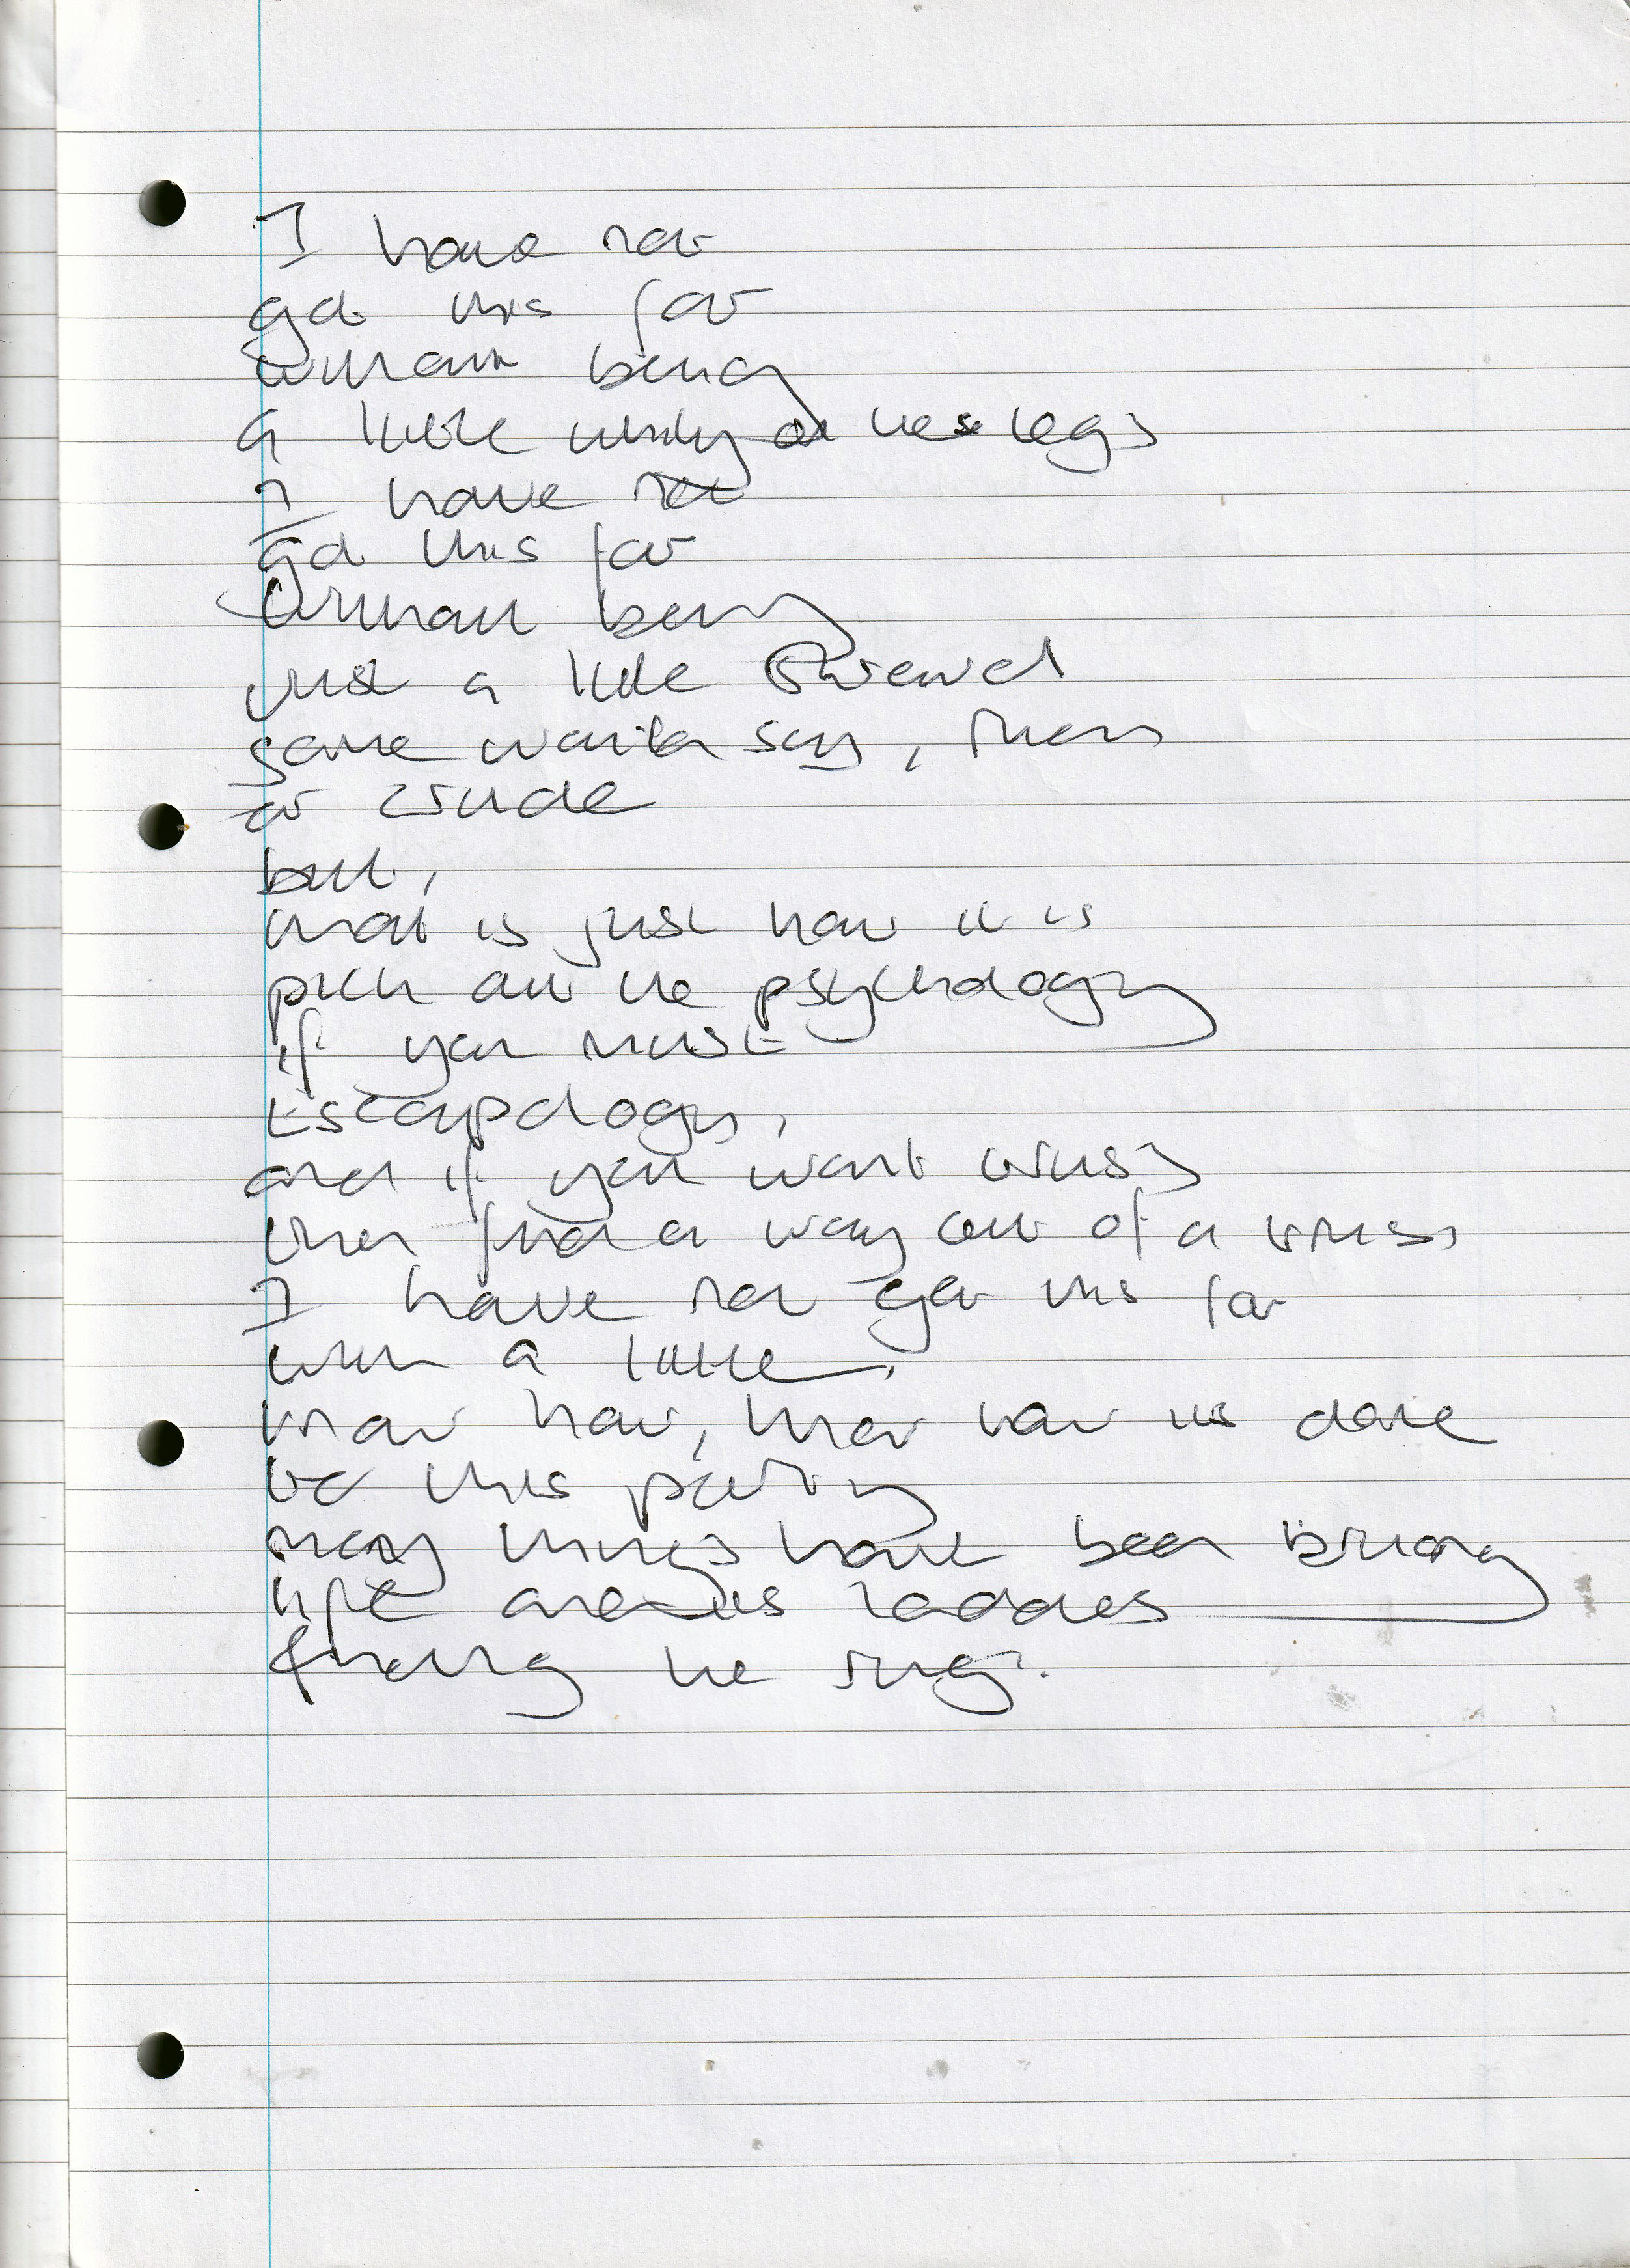 I have not
got this far
without being
a little wobbly on these legs
I have not
got this far
without being
just a little shrewd
some writers say, mean
or crude
but,
that is just how it is
pick out the psychology
if you must
Escapology,
and if you want trust
then find a way out of a truss
I have not got this far
with a little,
know how, know how its done
be this poetry
many things have been
life and its ladders
finding the rings.